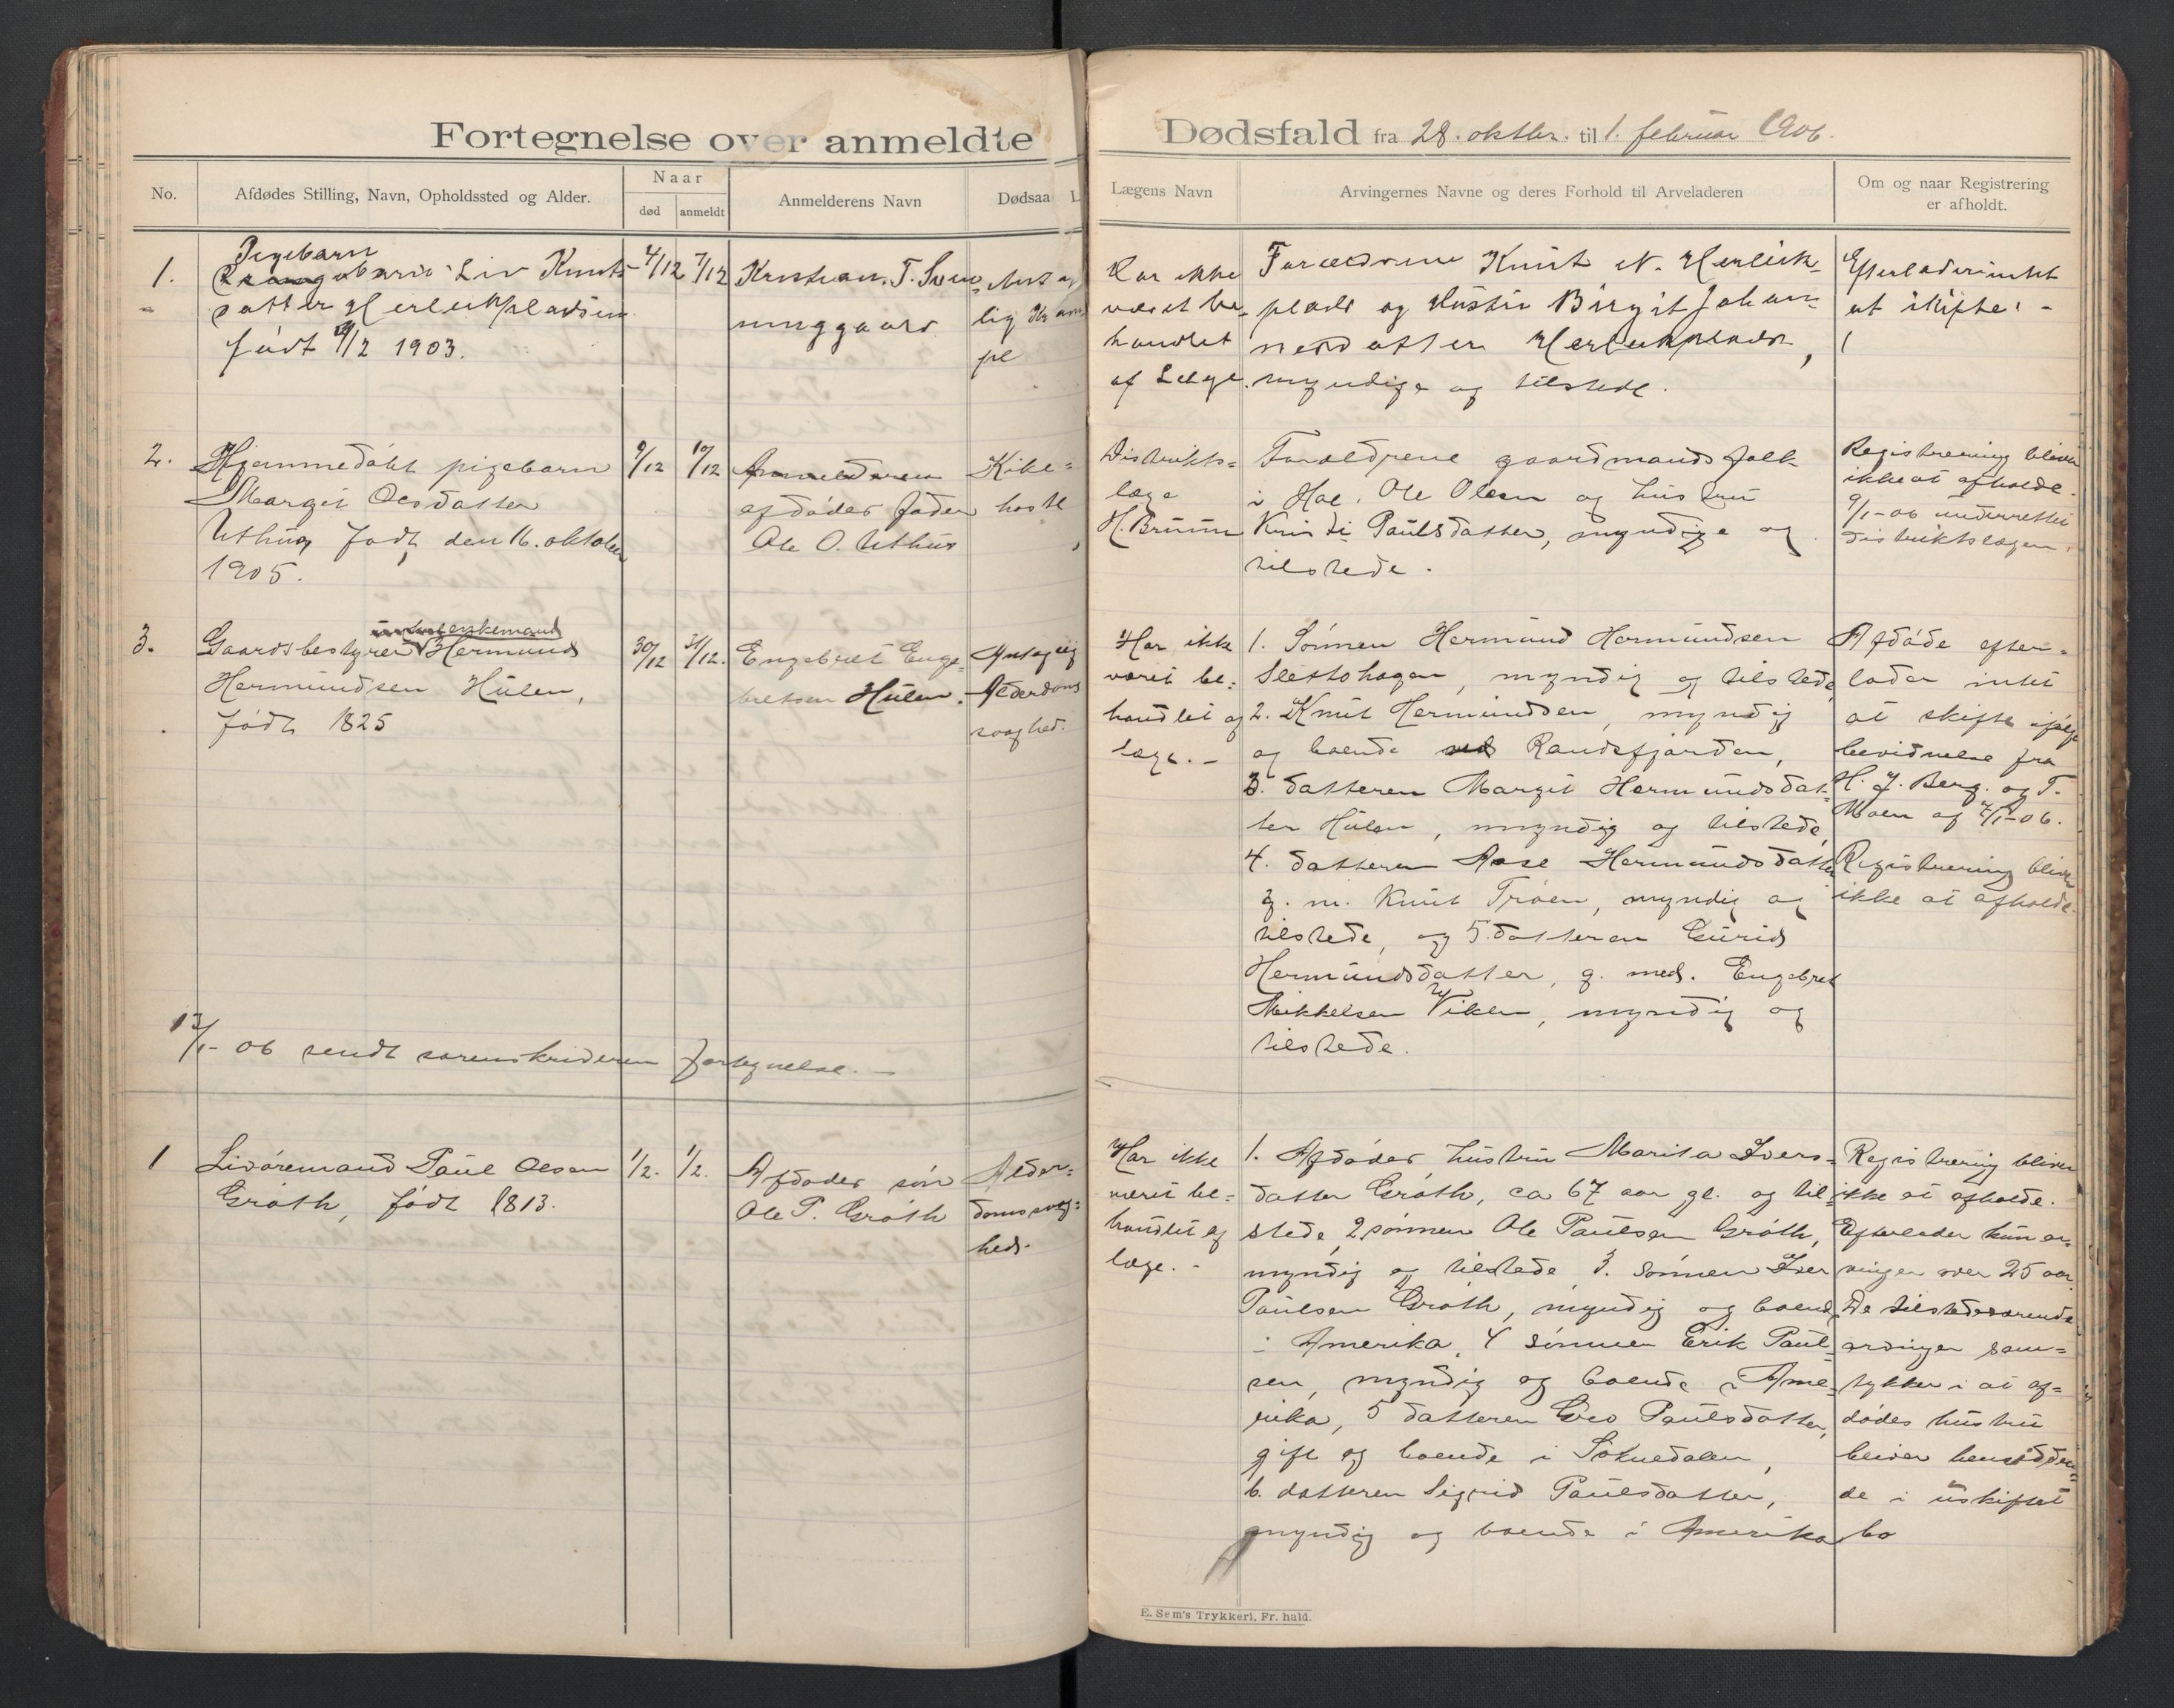 Fortegnelse over anmeldte
No.
Afdødes Stilling, Navn, Opholdssted og Alder.
Naar
død
anmeldt
Anmelderens Navn
Dødsaa
1.
Pigebarn
Liv Knuts-
datter Herleikpladsen
født /2 1903.
4/12
7/12
Kristian. T. Svenninggaard
lig Kram
pe
2.
Hjemmedøbt pigebarn
Margit Olsdatter
Uthus født den 16. oktober
1905.
9/12
10/12
Anmelderen
afdødes fader
Ole O. Uthus
Kike=
hoste
3.
enkemand
Gaardsbestyrer Hermund
Hermundsen Hulen,
født 1825
30/12
31/12.
Engebret Enge-
bretsen Hulen.
Antagelig
Alderdoms
svaghed.
13/1-06 sendt sorenskriveren fortegnelse. —
1
Livøremand Paul Olsen
Grøth, født 1813.
1/2.
1/2.
Afdødes søn
Ole P. Grøth
Alder=
domssvag=
hed.
Dødsfald fra 28. oktbr. til 1. februar 1906.
Lægens Navn
Arvingernes Navne og deres Forhold til Arveladeren
Om og naar Registrering
er afholdt.
Har ikke
været be-
handlet
af Læge.
Forældrene Knut N. Herleik-
plads og Hustru Birgit Johan-
nesdatter Herleikplads,
myndige og tilstede.
Efterlader intet
at skifte. -
Distrikts=
læge
H. Bruun
Forældrene gaardmandsfolk
i Hol. Ole Olsen og hustru
Kristi Paulsdatter, myndige og
tilstede.
Registrering bliver
ikke at afholde.
9/1-06 underrettet
distriktslægen.
Har ikke
været be-
handlet af
læge. -
1. Sønnen Hermund Hermundsen
Slettohagen, myndig og tilstede,
2. Knut Hermundsen, myndig
og boende ved Randsfjorden,
3. datteren Margit Hermundsdat-
ter Hulen, myndig og tilstede,
4. datteren Aase Hermundsdatter
g. m. Knut Trøen, myndig og
tilstede, og 5. datteren Gurid
Hermundsdatter, g. med. Engebret
Mikkelsen Viken, myndig og
tilstede.
Afdøde efter=
lader intet
at skifte ifølge
bevidnelse fra
H. J. Berg. og T.
Moen af /1-06.
Registrering bliver
ikke at afholde.
Har ikke
været be=
handlet af
læge. -
1. Afdødes hustru Marita Ivers-
datter Grøth, ca 67 aar gl. og til-
stede, 2 sønnen Ole Paulsen Grøth,
myndig og tilstede, 3. sønnen Iver
Paulsen Grøth, myndig og boende
i Amerika, 4 sønnen Erik Paul-
sen, myndig og boende i Ame-
rika, 5 datteren Gro Paulsdatter,
gift og boende i Soknedalen,
6. datteren Sigrid Paulsdatter,
myndig og boende i Amerika
Registrering bliver
ikke at afholde.
Efterlader kun ar-
vinger over 25 aar.
De tilstedeværende
arvinger sam=
tykker i at af=
dødes hustru
bliver hensidden-
de i uskiftet
bo
E. Sem's Trykkeri, Fr. hald.